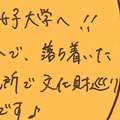 女子大学へ!!
へで、落ち着いた
所で文化財巡り
です♪